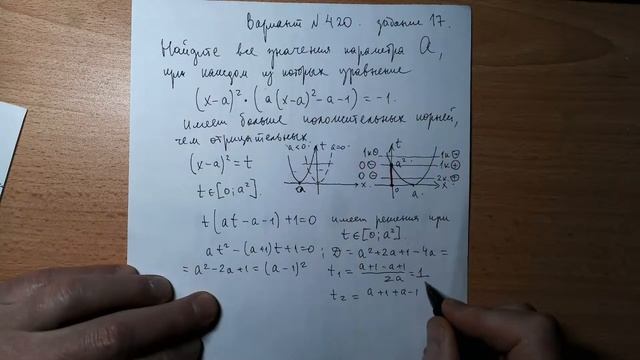 Вариант №420. задание 17.
Найдите все значения параметра a,
при каждом из которых уравнение
(x-a)²·(a(x-a)²-a-1)=-1.
имеет больше положительных корней,
чем отрицательных.
(x-a)²=t
t∈[0;a²].
a<0 t a=0
a x
t
1к⊖ 0⊖ 0⊖
a²
1к⊖ 1к⊕ 2к⊕
0 a x
t(at-a-1)+1=0 имеет решения при
t∈[0;a²]
at²-(a+1)t+1=0; D=a²+2a+1-4a=
=a²-2a+1=(a-1)²
t₁=(a+1-a+1)/2a=1
t₂= a+1+a-1